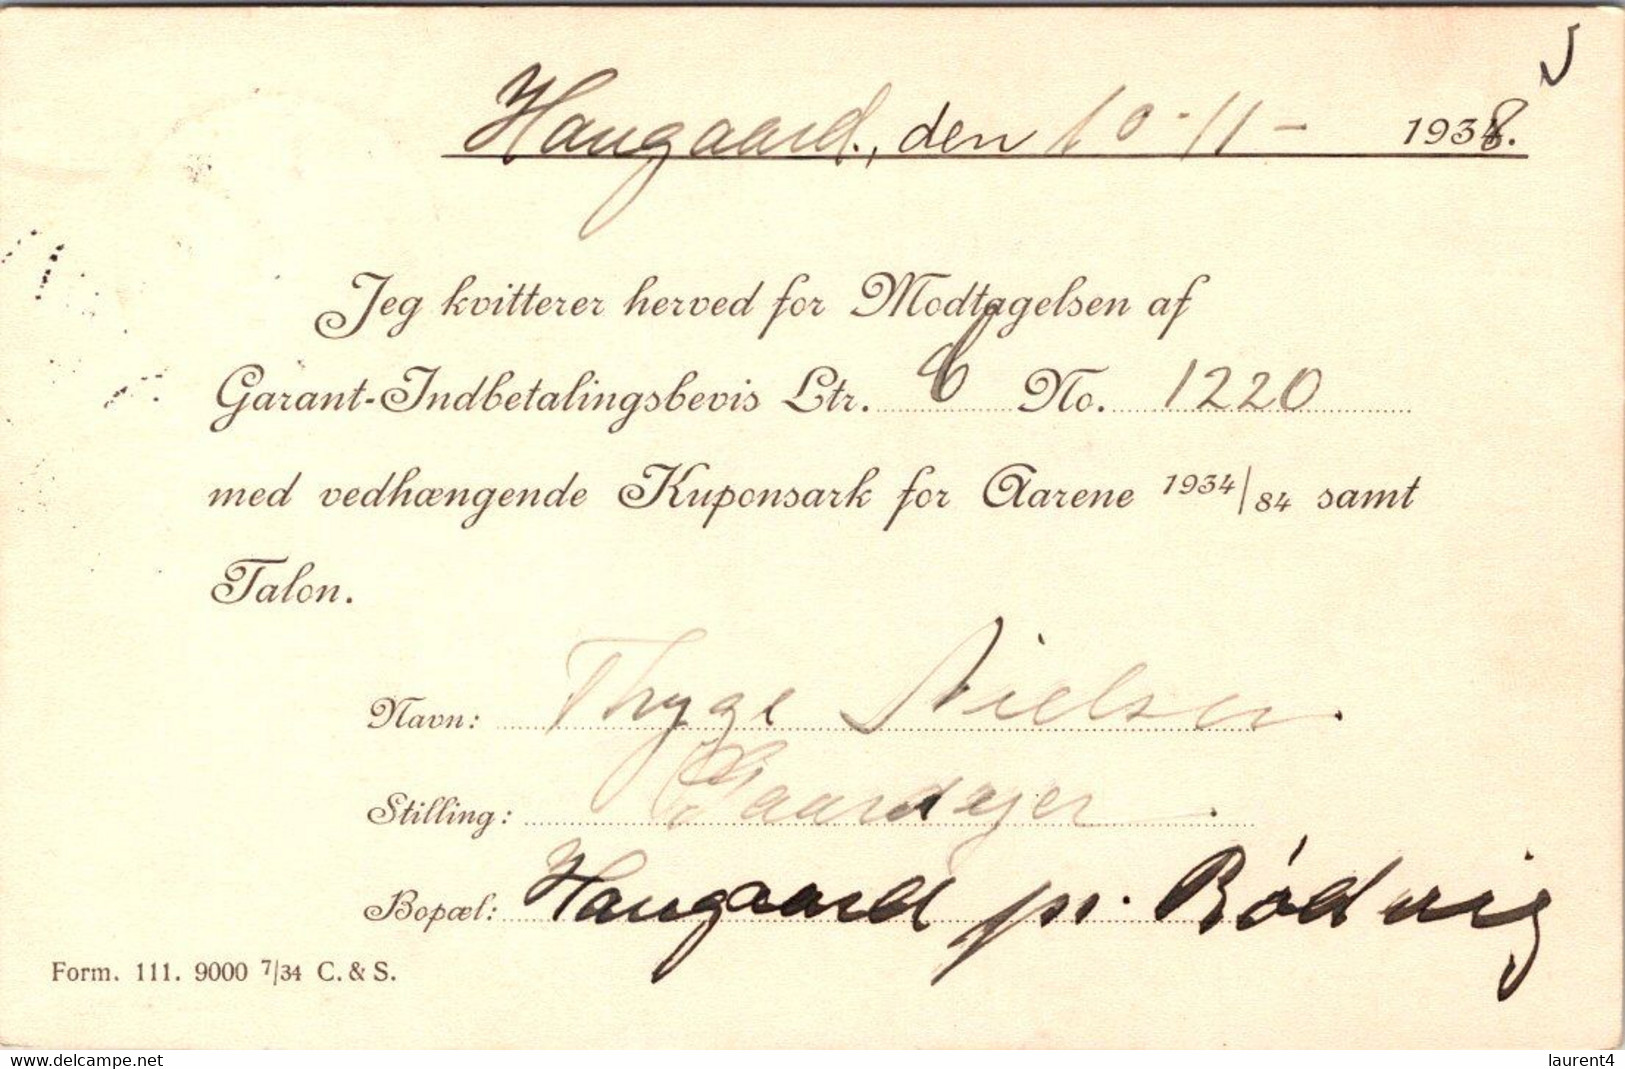 Haugaard., den 10-11- 1938.
Jeg kvitterer herved for Modtagelsen af
Garant-Indbetalingsbevis Ltr. C No. 1220
med vedhængende Kuponsark for Aarene 1934/84 samt
Talon.
Navn: Thyge Nielsen.
Stilling: Gaardejer.
Bopæl: Haugaard pr. Rødvig
Form. 111. 9000 7/34 C. & S.
www.delcampe.net
laurent4